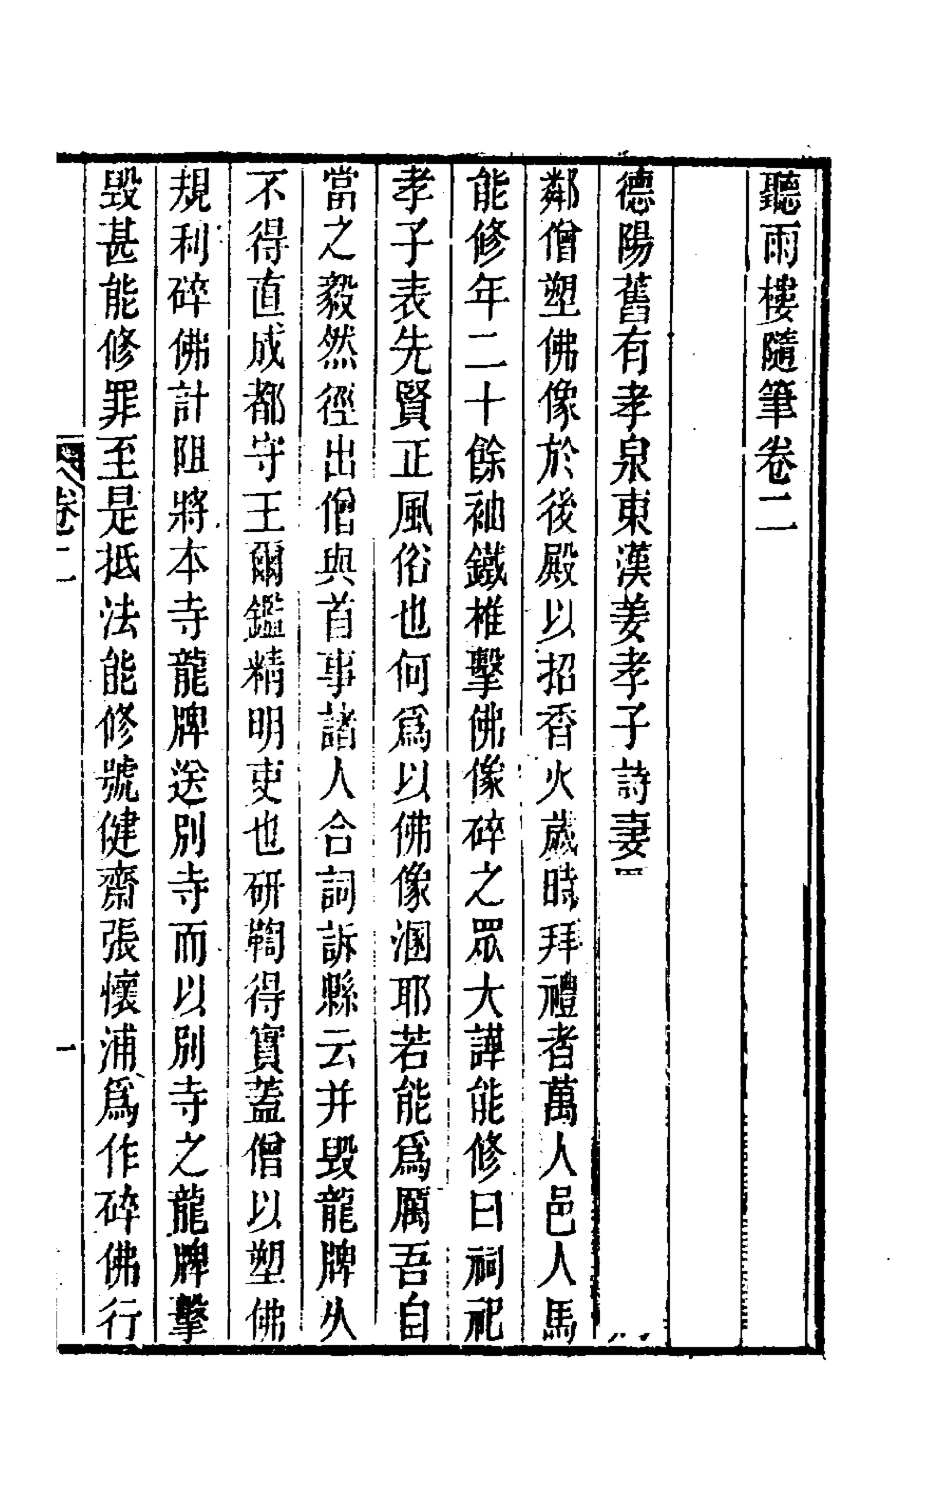 聽雨樓隨筆卷二
德陽舊有孝泉東漢姜孝子詩妻
鄰僧塑佛像於後殿以招香火歲時拜禮者萬人邑人馬
能修年二十餘袖鐵椎擊佛像碎之眾大譁能修曰祠祀
孝子表先賢正風俗也何爲以佛像溷耶若能爲厲吾自
當之毅然徑出僧與首事諸人合詞訴縣云并毀龍牌久
不得直成都守王爾鑑精明吏也研鞫得實蓋僧以塑佛
規利碎佛計阻將本寺龍牌送別寺而以別寺之龍牌擊
毀甚能修罪至是抵法能修號健齋張懷浦爲作碎佛行
卷二
一